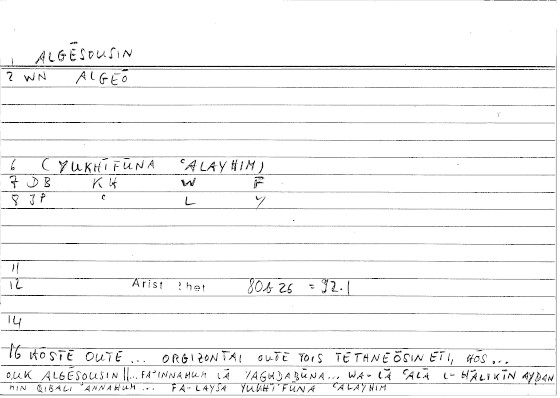 1 ALGĒSOUSIN
2 WN ALGEŌ
6 (YUKHĪFŪNA ʿALAYHIM)
7 DB KH W F
8 JP ʿ L Y
11
12 Arist rhet 80b 26 = 92.1
14
16 HŌSTE OUTE ... ORGIZONTAI OUTE TOIS TETHNEŌSIN ETI, HŌS ...
OUK ALGĒSOUSIN || ... FA-ʾINNAHUM LĀ YAGHḌABŪNA ... WA-LĀ ʿALĀ L-HĀLIKĪN AYḌAN
MIN QIBALI ʾANNAHUM ... FA-LAYSA YUKHĪFŪNA ʿALAYHIM